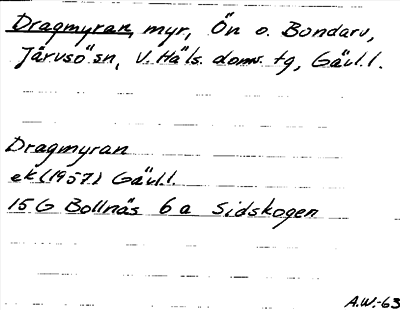 Dragmyran, myr, Ön o. Bondarv,
Järvsö sn, V. Häls. doms. tg, Gävl. l.
Dragmyran
ek (1957) Gävl. l.
15G Bollnäs 6a Sidskogen
A.W.-63